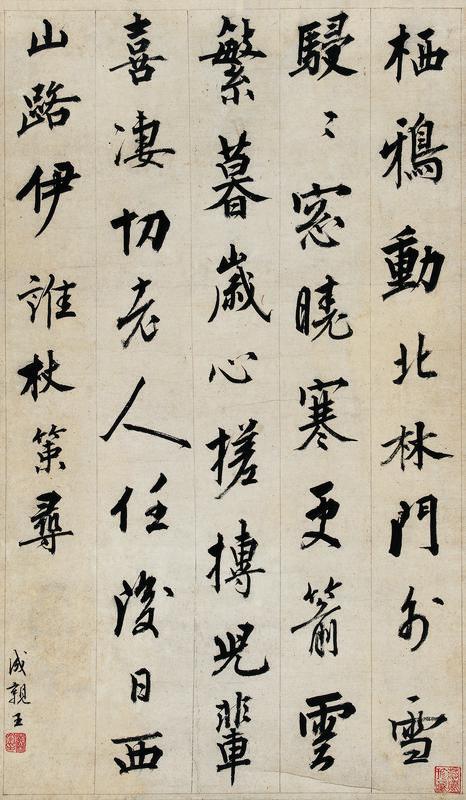 栖鴉動北林門外雪
駸〻窓曉寒更箭雲
繁暮歲心搓摶兒輩
喜淒切老人任後日西
山路伊誰杖策尋
成親王